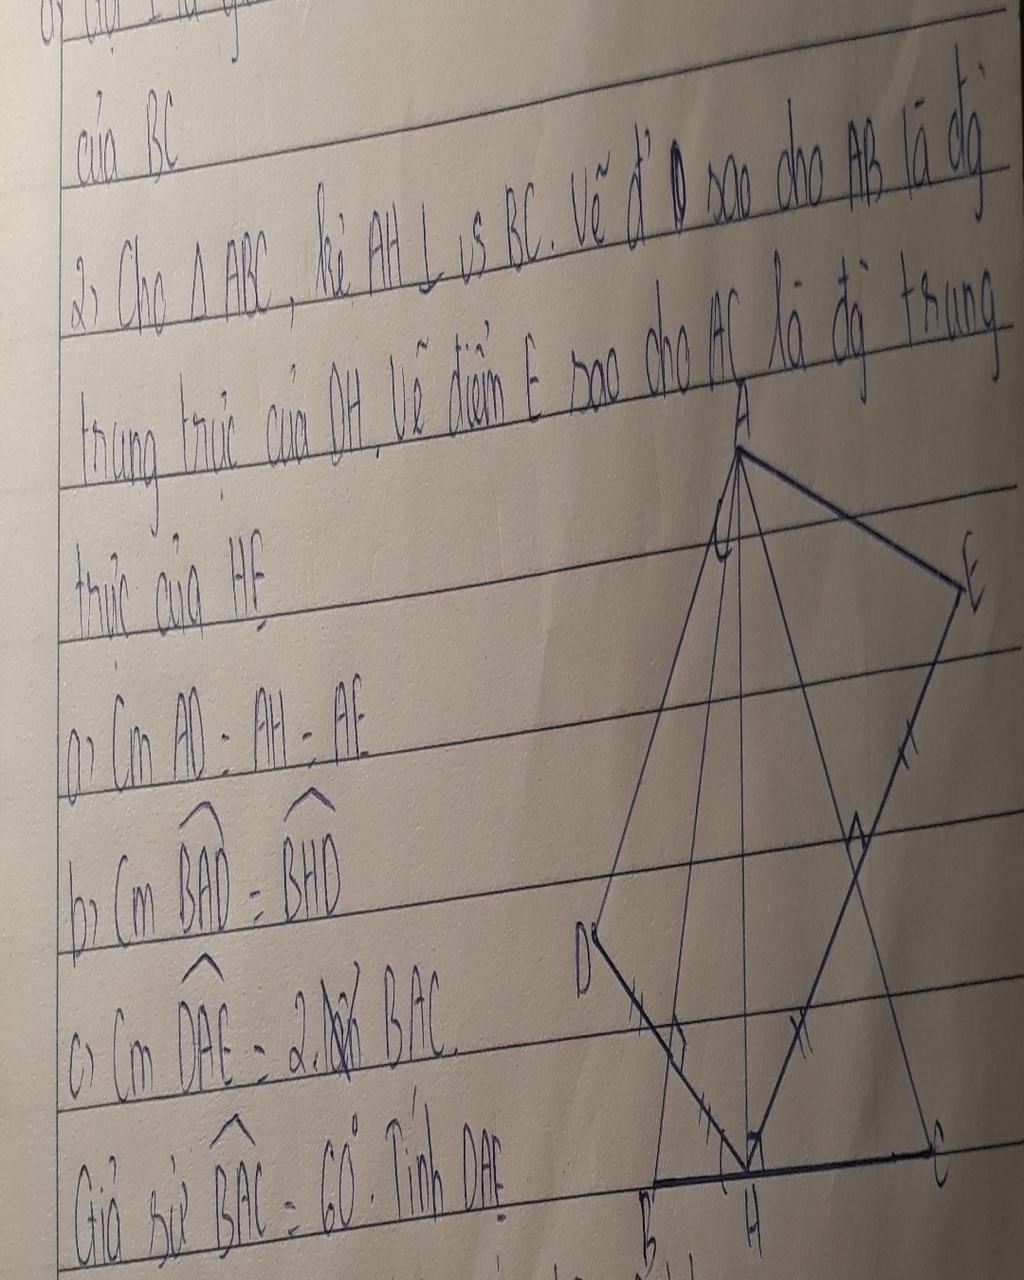 của BC
2, Cho Δ ABC, kẻ AH ⊥ vs BC. Vẽ đ' D sao cho AB là đg
trung trực của DH, Vẽ điểm E sao cho AC là đg trung
trực của HE
A
E
a, Cm AD = AH = AE
b, Cm BAD = BHD
D
c, Cm DAE = 2. BAC.
Giả sử BAC = 60°. Tính DAE
B H C